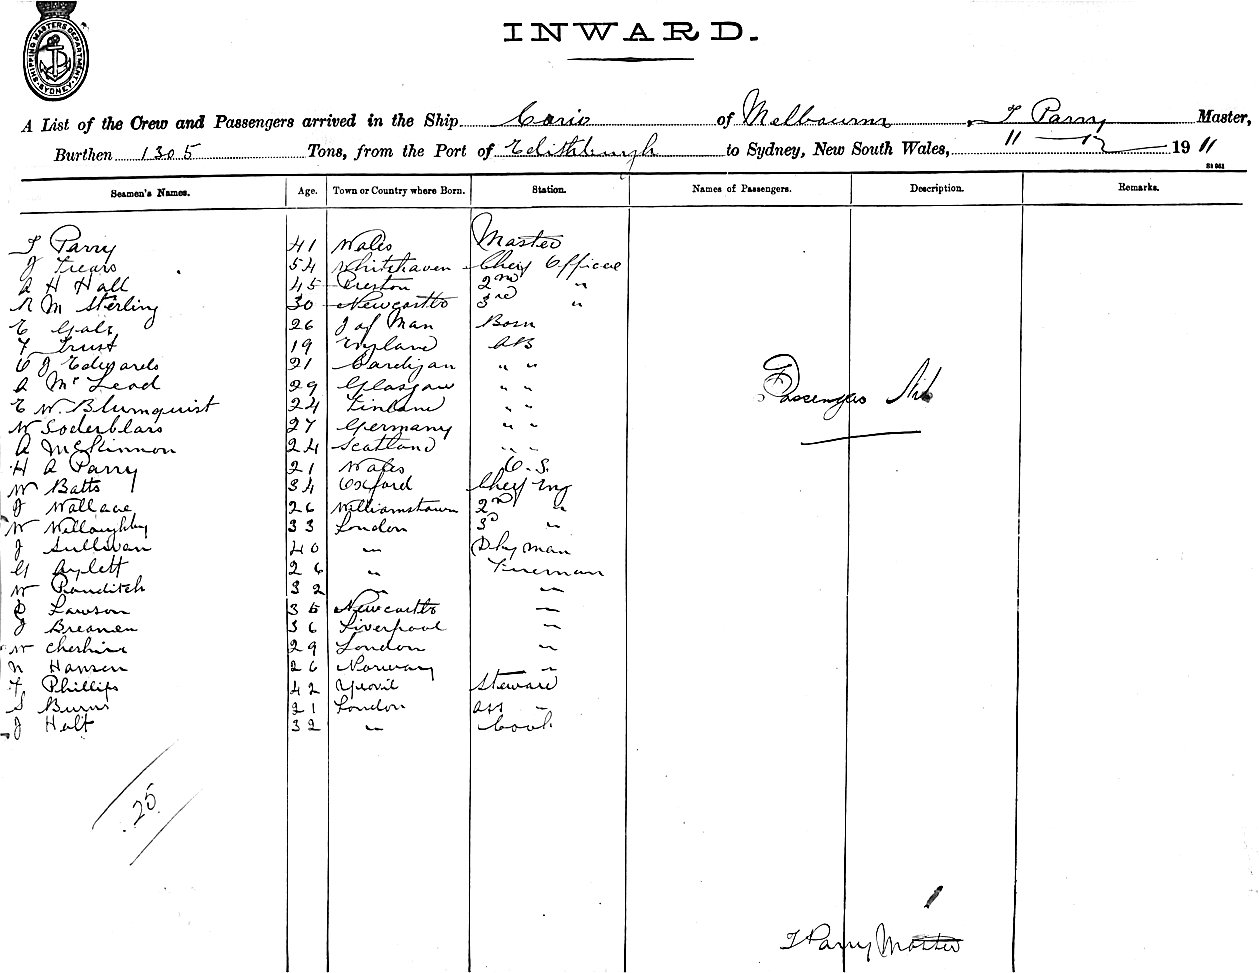 SHIPPING MASTERS DEPARTMENT SYDNEY
INWARD.
A List of the Crew and Passengers arrived in the Ship Corio of Melbourne, T Parry Master,
Burthen 1305 Tons, from the Port of Edithburgh to Sydney, New South Wales, 11 — 12 — 1911
Seamen's Names. Age. Town or Country where Born. Station. Names of Passengers. Description. Remarks.
T Parry 41 Wales Master
J 54 Whitehaven Chief Officer
A H Hall 45 Preston 2nd "
R M Sterling 30 Newcastle 3rd "
E Gale 26 I of Man Bosn
F Trust 19 England AB
C J Edwards 21 Cardigan " "
A McLeod 29 Glasgow " "
E W. Blumquist 24 Finland " "
W Soderblars 27 Germany " "
A McKinnon 24 Scotland " "
H A Parry 21 Wales O.S.
W Batts 34 Oxford Chief Eng
J Wallace 26 Williamstown 2nd "
W Willoughby 33 London 3rd "
J Sullivan 40 " Dkyman
G Aylett 26 " Fireman
W 32 " "
Lawson 35 Newcastle "
J Breanen 36 Liverpool "
W Cheshire 29 London "
N Hansen 26 Norway "
F Phillips 42 Yeovil Steward
S Burns 21 London Ass "
J Holt 32 " Cook
Passengers Nil
25
T Parry Master